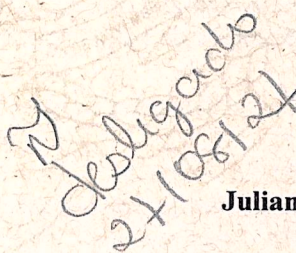 desligado
27/08/21
Julian